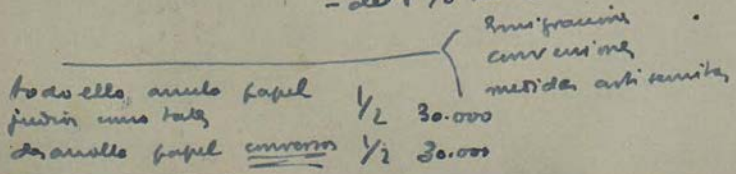 - del 1 %
emigraciones
conversiones
medidas antisemitas
todo ello, anula papel
judíos como tales 1/2 30.000
desarrollo papel conversos 1/2 30.000